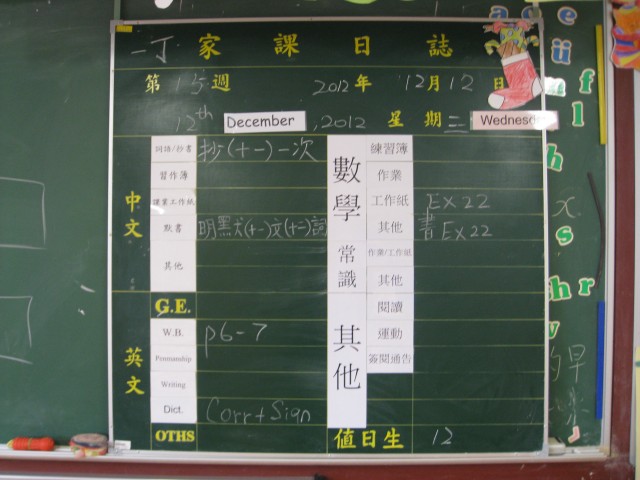 一丁 家課日誌
第 15 週 2012 年 12 月 12 日
12th December, 2012 星期 三 Wednesd
中文
詞語/抄書 抄(十一)一次
習作簿
課堂工作紙
默書 明默犬(十一)文(十一)詞
其他
G.E.
英文
W.B. P6-7
Penmanship
Writing
Dict. Corr + Sign
OTHS
數學
練習簿
作業
工作紙 EX22
其他 書 EX22
常識
作業/工作紙
其他
其他
閱讀
運動
簽閱通告
值日生 12
e
ü f
l
h
s
h r
v
早